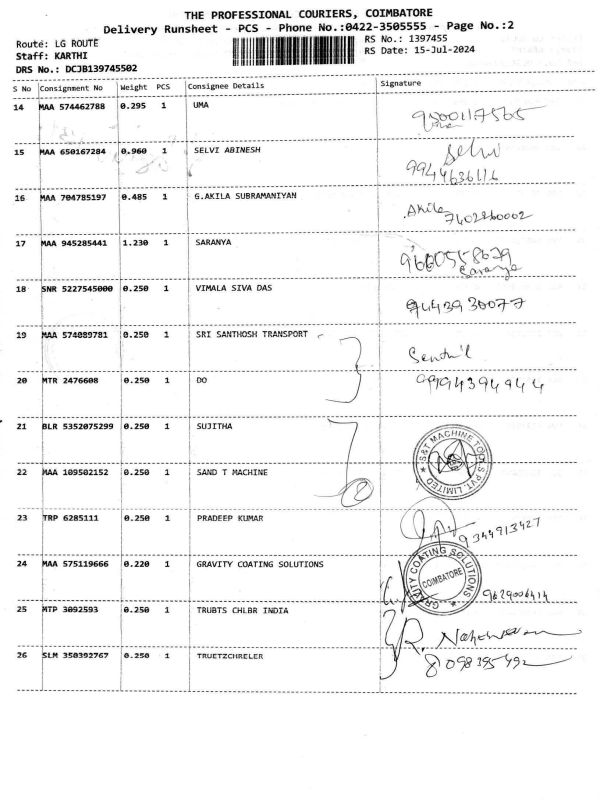 THE PROFESSIONAL COURIERS, COIMBATORE
Delivery Runsheet - PCS - Phone No.:0422-3505555 - Page No.:2
Route: LG ROUTE
RS No.: 1397455
Staff: KARTHI
RS Date: 15-Jul-2024
DRS No.: DCJB139745502
S No Consignment No Weight PCS Consignee Details Signature
14 MAA 574462788 0.295 1 UMA
15 MAA 650167284 0.960 1 SELVI ABINESH Selvi
9944636116
16 MAA 704785197 0.485 1 G.AKILA SUBRAMANIYAN Akila
7402260002
17 MAA 945285441 1.230 1 SARANYA
Saranya
18 SNR 5227545000 0.250 1 VIMALA SIVA DAS 9443930077
19 MAA 574089781 0.250 1 SRI SANTHOSH TRANSPORT Senthil
20 MTR 2476608 0.250 1 DO 9994394944
21 BLR 5352075299 0.250 1 SUJITHA
S&T MACHINE TOOLS PVT. LIMITED
22 MAA 109502152 0.250 1 SAND T MACHINE
23 TRP 6285111 0.250 1 PRADEEP KUMAR 9344913427
24 MAA 575119666 0.220 1 GRAVITY COATING SOLUTIONS
GRAVITY COATING SOLUTIONS
COIMBATORE
9629006414
25 MTP 3092593 0.250 1 TRUBTS CHLBR INDIA
26 SLM 350392767 0.250 1 TRUETZCHRELER 8098395492